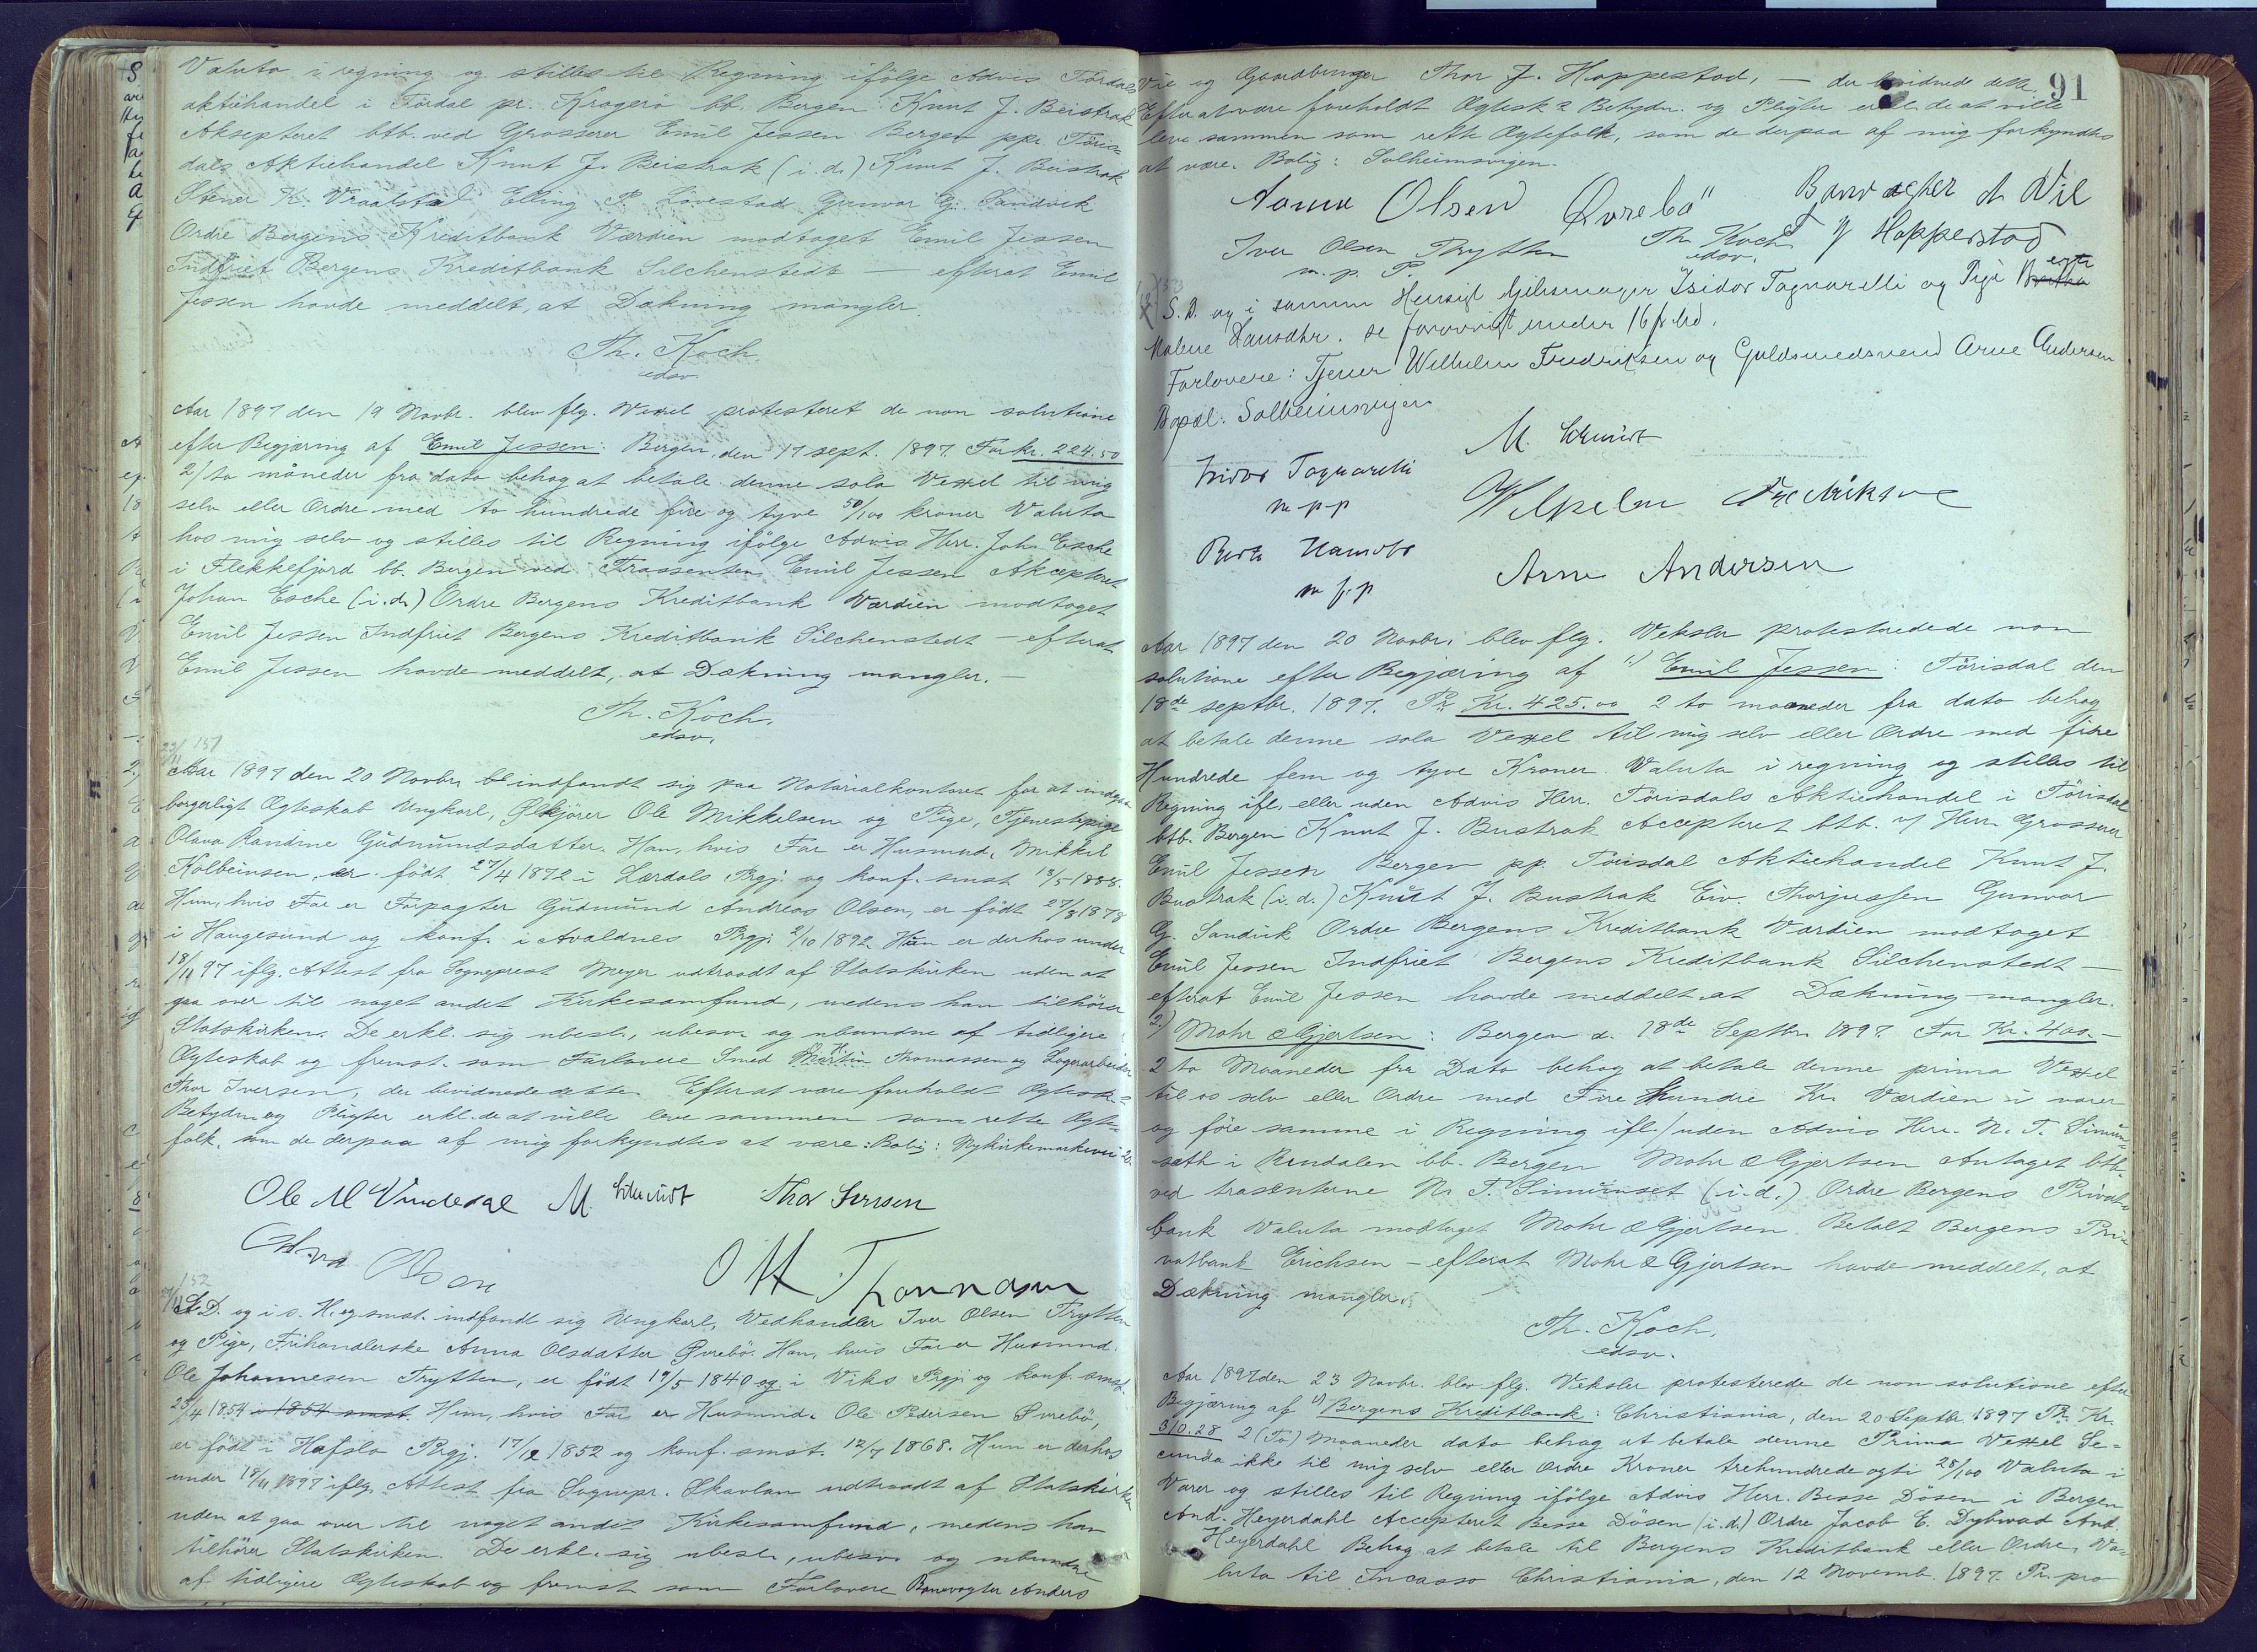 Valuta i regning og stilles til Regning ifölge Advis Tördals
aktiehandel i Tördal pr. Kragerö bt. Bergen Knut J. Beistrak
Aksepteret btb. ved Grosserer Emil Jessen Bergen ppr. Töris-
dals Aktiehandel Knut J. Beistrak (i. d.) Knut J. Beistrak
Stener K. Vraalstad Elling P. Lövestad Gunvor G. Sandvik
Ordre Bergens Kreditbank Værdien modtaget Emil Jessen
Indfriet Bergens Kreditbank Silchenstedt — efterat Emil
Jessen havde meddelt, at Dækning mangler.
Th. Koch
edsv.
Aar 1897 den 19 Novbr. blev flg. Vexel protesteret de non solutione
efter Begjæring af Emil Jessen: Bergen, den 17 sept. 1897. For kr. 224.50
2/to måneder fra dato behag at betale denne sola Vexel til mig
selv eller Ordre med to hundrede fire og tyve 50/100 kroner Valuta
hos mig selv og stilles til Regning ifölge Advis Herr. Joh. Esche
i Flekkefjord bb. Bergen ved Trassenten Emil Jessen Akcepteret
Johan Esche (i. d.) Ordre Bergens Kreditbank Værdien modtaget
Emil Jessen Indfriet Bergens Kreditbank Silchenstedt — efterat
Emil Jessen havde meddelt, at Dækning mangler. —
Th. Koch.
edsv.
151
Aar 1897 den 20 Novbr. indfandt sig paa Notarialkontoret for at indgaa
borgerligt Ægteskab Ungkarl, Ølkjörer Ole Mikkelsen og Pige, Tjenestepige
Olava Randine Gudmundsdatter. Han, hvis Far er Husmnd. Mikkel
Kolbeinsen, er født 27/4 1872 i Lærdals Prgj. og konf. smst 13/5 1888.
Hun, hvis Far er Forpagter Gudmund Andreas Olsen, er født 27/8 1878
i Haugesund og konf. i Avaldnes Prgj. 2/10 1892. Hun er derhos under
18/11 97 iflg. Attest fra Sogneprest Meyer udtraadt af Statskirken uden at
gaa over til noget andet Kirkesamfund, medens han tilhörer
Statskirken. De erkl. sig ubesl., ubesv. og ubundne af tidligere
Ægteskab og fremst. som Forlovere Smed Martin Thomassen og Lagerarbeider
Thor Iversen, der bevidnede dette. Efterat være foreholdt Ægtesk.=
Betydn. og Pligter erkl. de at ville leve sammen som rette Ægte-
folk, som de derpaa af mig forkyndtes at være: Bolig: Nykirkemarkevei 20.
Ole M Vindedal M. Schmidt Thor Iversen
Olava Olsen
O M Thomassen
152
S. D. og i s. H. og smst. indfandt sig Ungkarl, Vedhandler Iver Olsen Trytten
og Pige, Frihandlerske Anna Olsdatter Øvrebö. Han, hvis Far er Husmnd.
Ole Johannesen Trytten, er födt 19/5 1840 og i Viks Prgj. og konf. smst.
23/4 1854 i 1854 smst. Hun, hvis Far er Husmnd. Ole Pedersen Øvrebö,
er födt i Hafslo Prgj. 17/12 1852 og konf. smst. 12/7 1868. Hun er derhos
under 18/11 1897 iflg. Attest fra Sognepr. Skavlan udtraadt af Statskirken
uden at gaa over til noget andet Kirkesamfund, medens han
tilhörer Statskirken. De erkl. sig ubesl., ubesv. og ubundne
af tidligere Ægteskab og fremst som Forlovere Banevogter Anders
91
Vie og Gaardbruger Thor J. Hoppestad, — der bevidnede dette.
Efter at være foreholdt Ægtesk. Betydn. og Pligter erkl. de at ville
leve sammen som rette Ægtefolk, som de derpaa af mig forkyndtes
at være. Bolig: Solheimsvigen.
Anna Olsen Øvrebö Banvogter A Vie
Iver Olsen Trytten Th. Koch T J Hopperstad
m. p. P. edsv.
153
S. D. og i samme Hensigt Gibsmager Isidor Tognarelli og Pige Berte
Malene Hansdtr. se foranvist under 16 ds.
Forlovere: Tjener Wilhelm Fredriksen og Guldsmedsvend Arne Andersen
Bopæl: Solheimsvigen
M. Schmidt
Isidor Tognarelli
m p p
Wilhelm Fredriksen
Berte Hansdtr
m p p
Arne Andersen
Aar 1897 den 20 Novbr. blev flg. Veksler protesterede de non
solutione efter Begjæring af 1.) Emil Jessen: Törisdal den
18de septbr. 1897. Pr. Kr. 425.00 2 to maaneder fra dato behag
at betale denne sola Vexel til mig selv eller Ordre med fire
Hundrede fem og tyve Kroner. Valuta i regning og stilles til
Regning ifl. eller uden Advis Herr. Törisdals Aktiehandel i Törisdal
btb. Bergen Knut J. Bustrak Accepteret btb. v/ Herr Grosserer
Emil Jessen Bergen pp. Törisdal Aktiehandel Knut J.
Bustrak (i. d.) Knut J. Bustrak Eiv. Thorjussen Gunvor
G. Sandvik Ordre Bergens Kreditbank Værdien modtaget
Emil Jessen Indfriet Bergens Kreditbank Silchenstedt —
efterat Emil Jessen havde meddelt, at Dækning mangler.
2.) Mohr & Gjertsen: Bergen d. 18de Septbr. 1897. For Kr. 400.—
2 to Maaneder fra Dato behag at betale denne prima Vexel
til os selv eller Ordre med Fire Hundre Kr. Værdien i varer
og före samme i Regning ifl./uden Advis Herr. N. T. Simun-
sæth i Rindalen bb. Bergen Mohr & Gjertsen Antaget btb.
ved trasenterne N. T. Simunset (i. d.) Ordre Bergens Privat-
bank Valuta modtaget Mohr & Gjertsen. Betalt Bergens Pri-
vatbank Erichsen — efterat Mohr & Gjertsen havde meddelt, at
Dækning mangler.
Th. Koch.
edsv.
Aar 1897 den 23 Novbr. blev flg. Veksler protesterede de non solutione efter
Begjæring af 1) Bergens Kreditbank: Christiania, den 20 Septbr. 1897 Pr. Kr.
310.28 2 (To) Maaneder dato behag at betale denne Prima Vexel Se=
cunda ikke til mig selv eller Ordre Kroner trehundrede ogti 28/100 Valuta i
Varer og stilles til Regning ifölge Advis Herr. Besse Dösen i Bergen
And. Heyerdahl Accepteret Besse Dösen (i. d.) Ordre Jacob E. Dybwad And.
Heyerdahl Behag at betale til Bergens Kreditbank eller Ordre, Va-
luta til Incasso Christiania, den 12 Novemb. 1897. Pr. pro